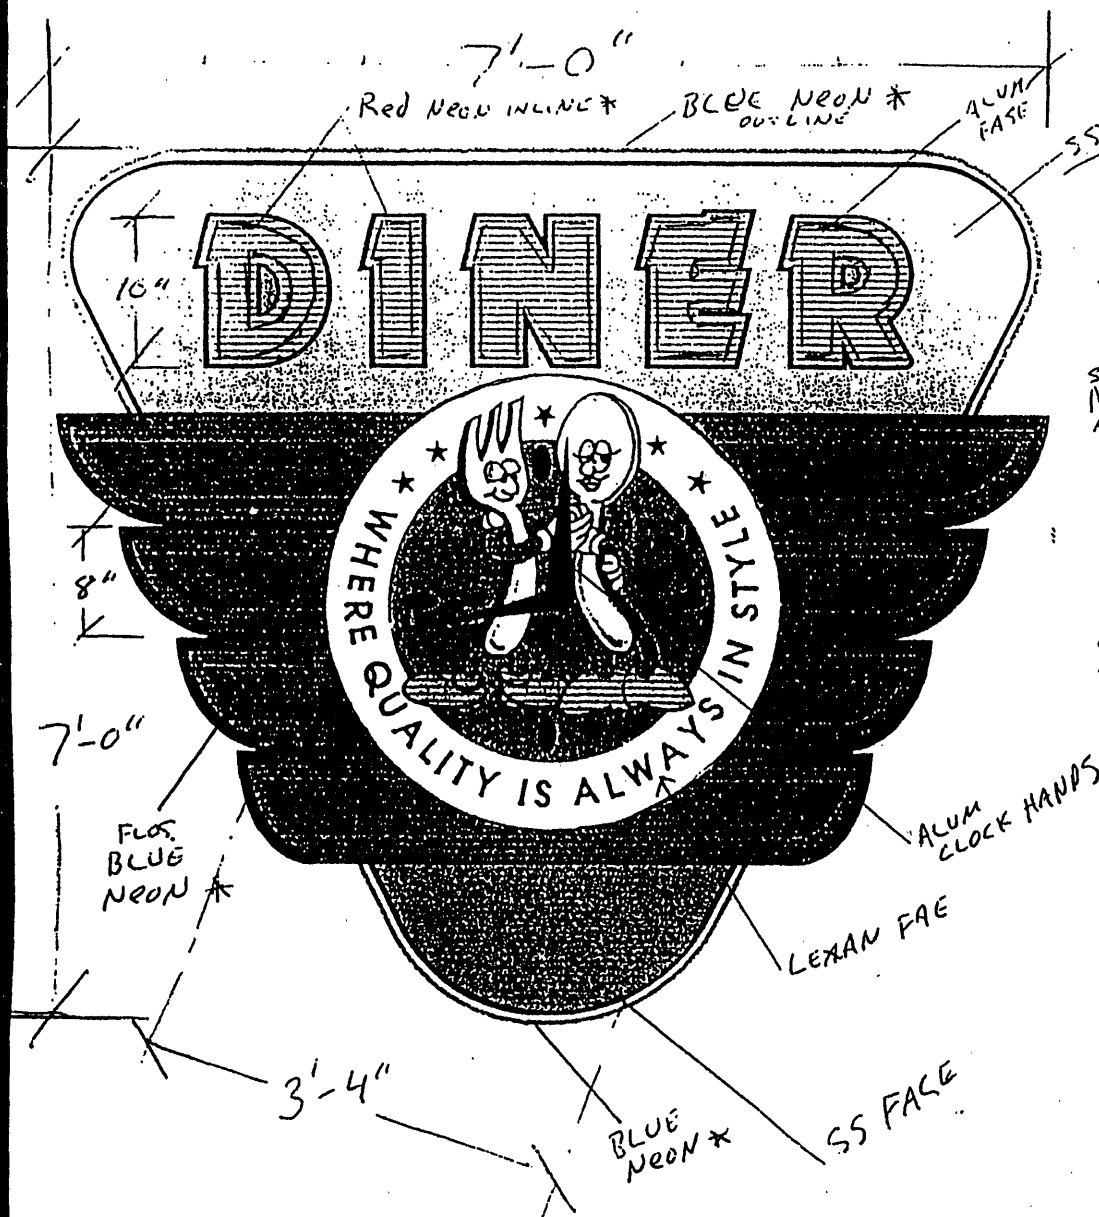 7'-0"
Red NeON INLINE *
BLUE NeON *
OUTLINE
ALUM
FASE
SS
DINER
10"
8"
WHERE QUALITY IS ALWAYS IN STYLE
7'-0"
FLOS.
BLUE
NeON *
ALUM
CLOCK HANDS
LEXAN FAE
3'-4"
BLUE
NeON *
SS FASE